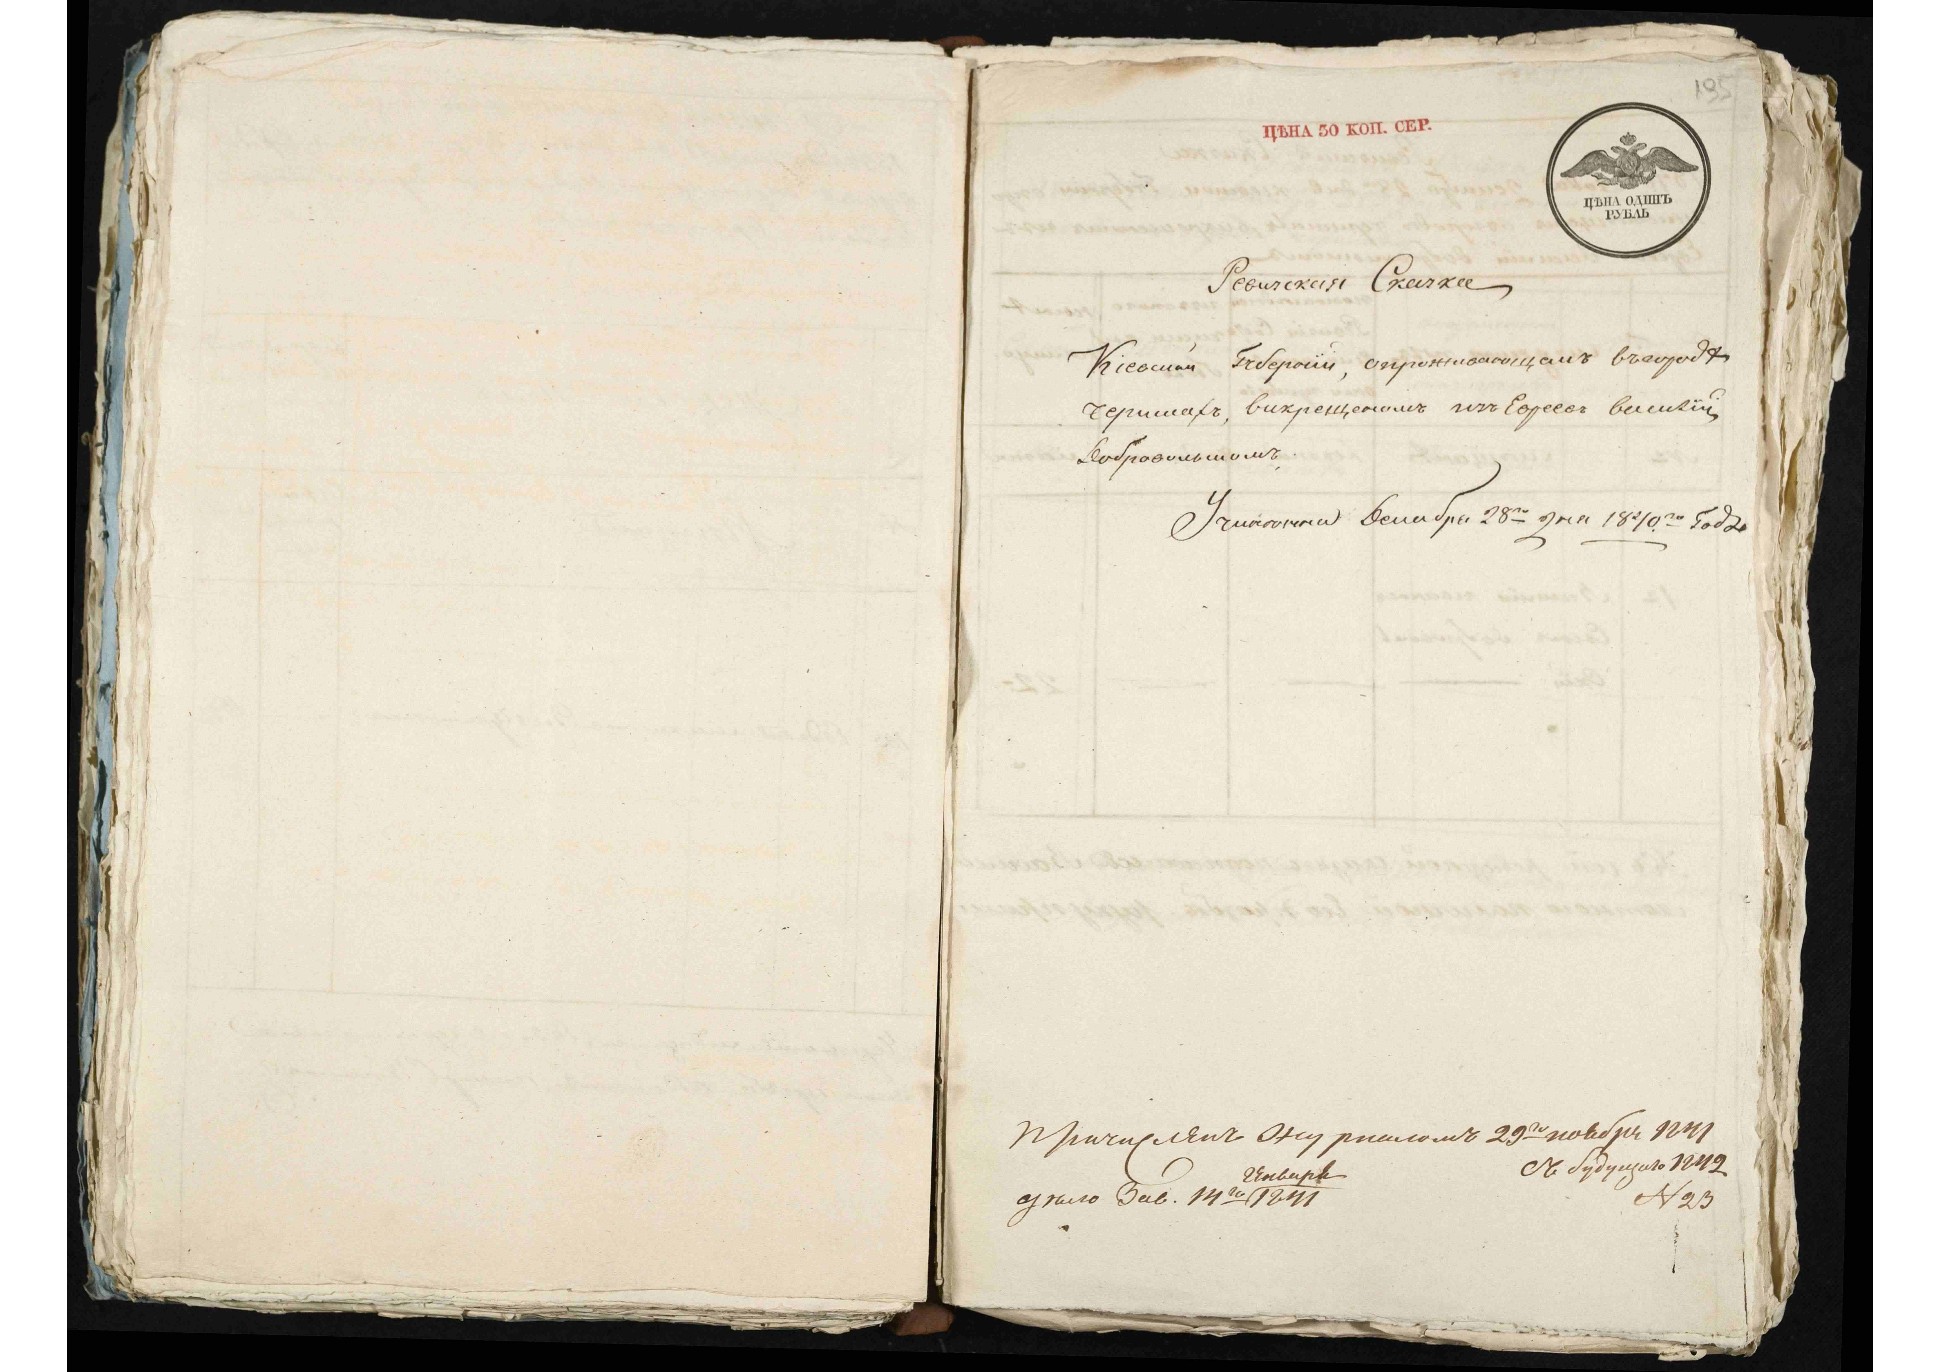 195
ЦѢНА 50 КОП. СЕР.
ЦѢНА ОДИНЪ
РУБЛЬ
Ревизская Сказка
Кіевской Губерніи, опроживающемъ въ городѣ
Черкасахъ, викрещеномъ изъ Евреевъ Василій
Добровольскомъ.
Учиненна Декабря 28го дня 1840го Года
Причисленъ Журналомъ 29го ноября 1841
съ будущаго 1842
дѣло Зав. 14го Января 1841
N 23